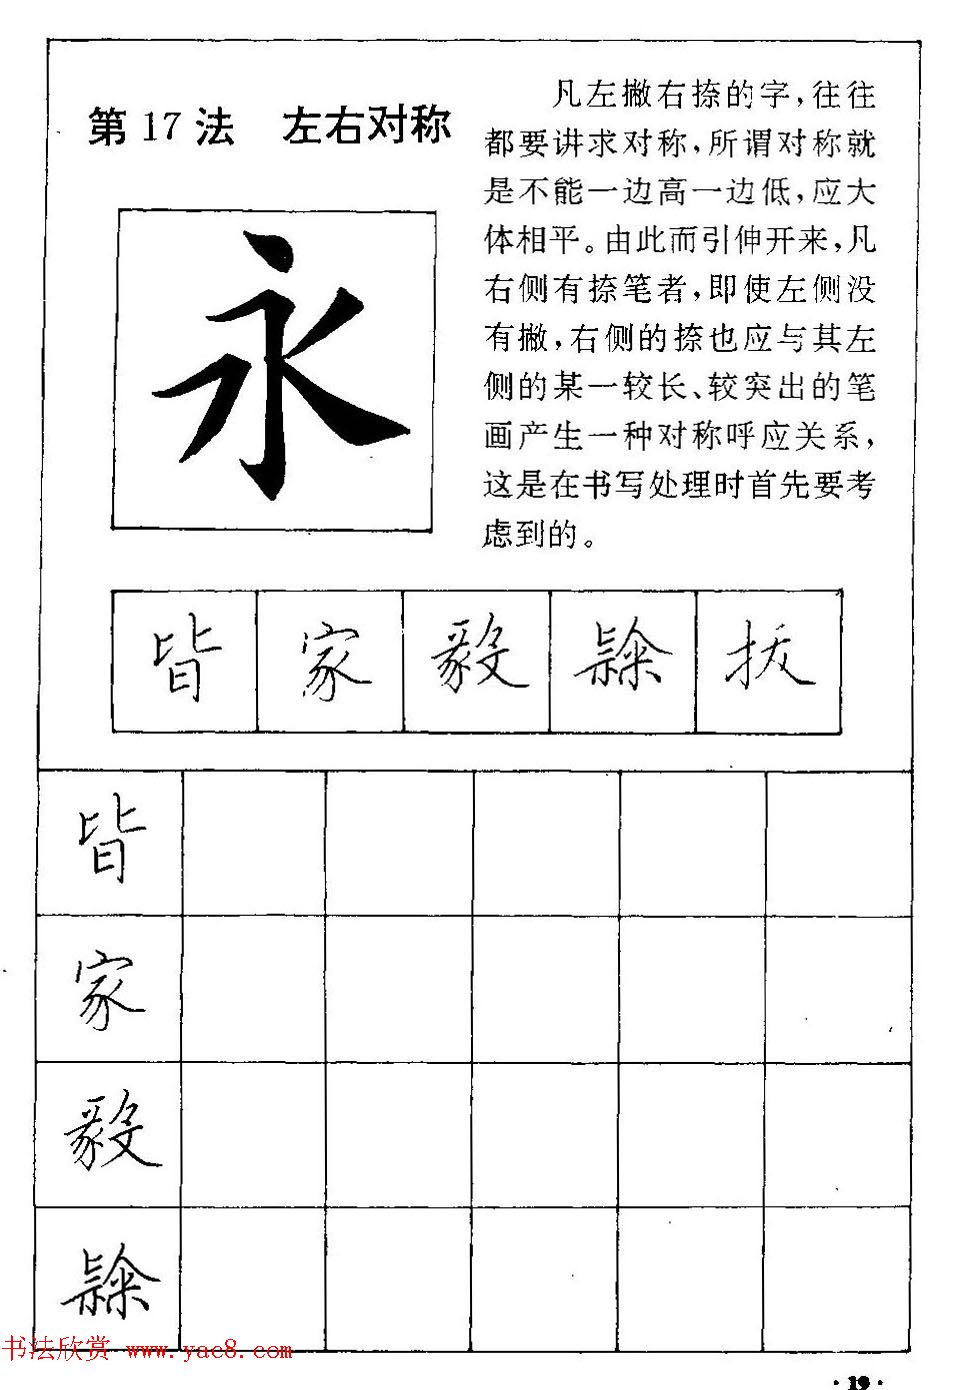 第17法 左右对称
凡左撇右捺的字，往往
都要讲求对称，所谓对称就
是不能一边高一边低，应大
体相平。由此而引伸开来，凡
右侧有捺笔者，即使左侧没
有撇，右侧的捺也应与其左
侧的某一较长、较突出的笔
画产生一种对称呼应关系，
这是在书写处理时首先要考
虑到的。
永
皆 家 毅 拔
皆
家
毅
书法欣赏 www.yac8.com
·19·